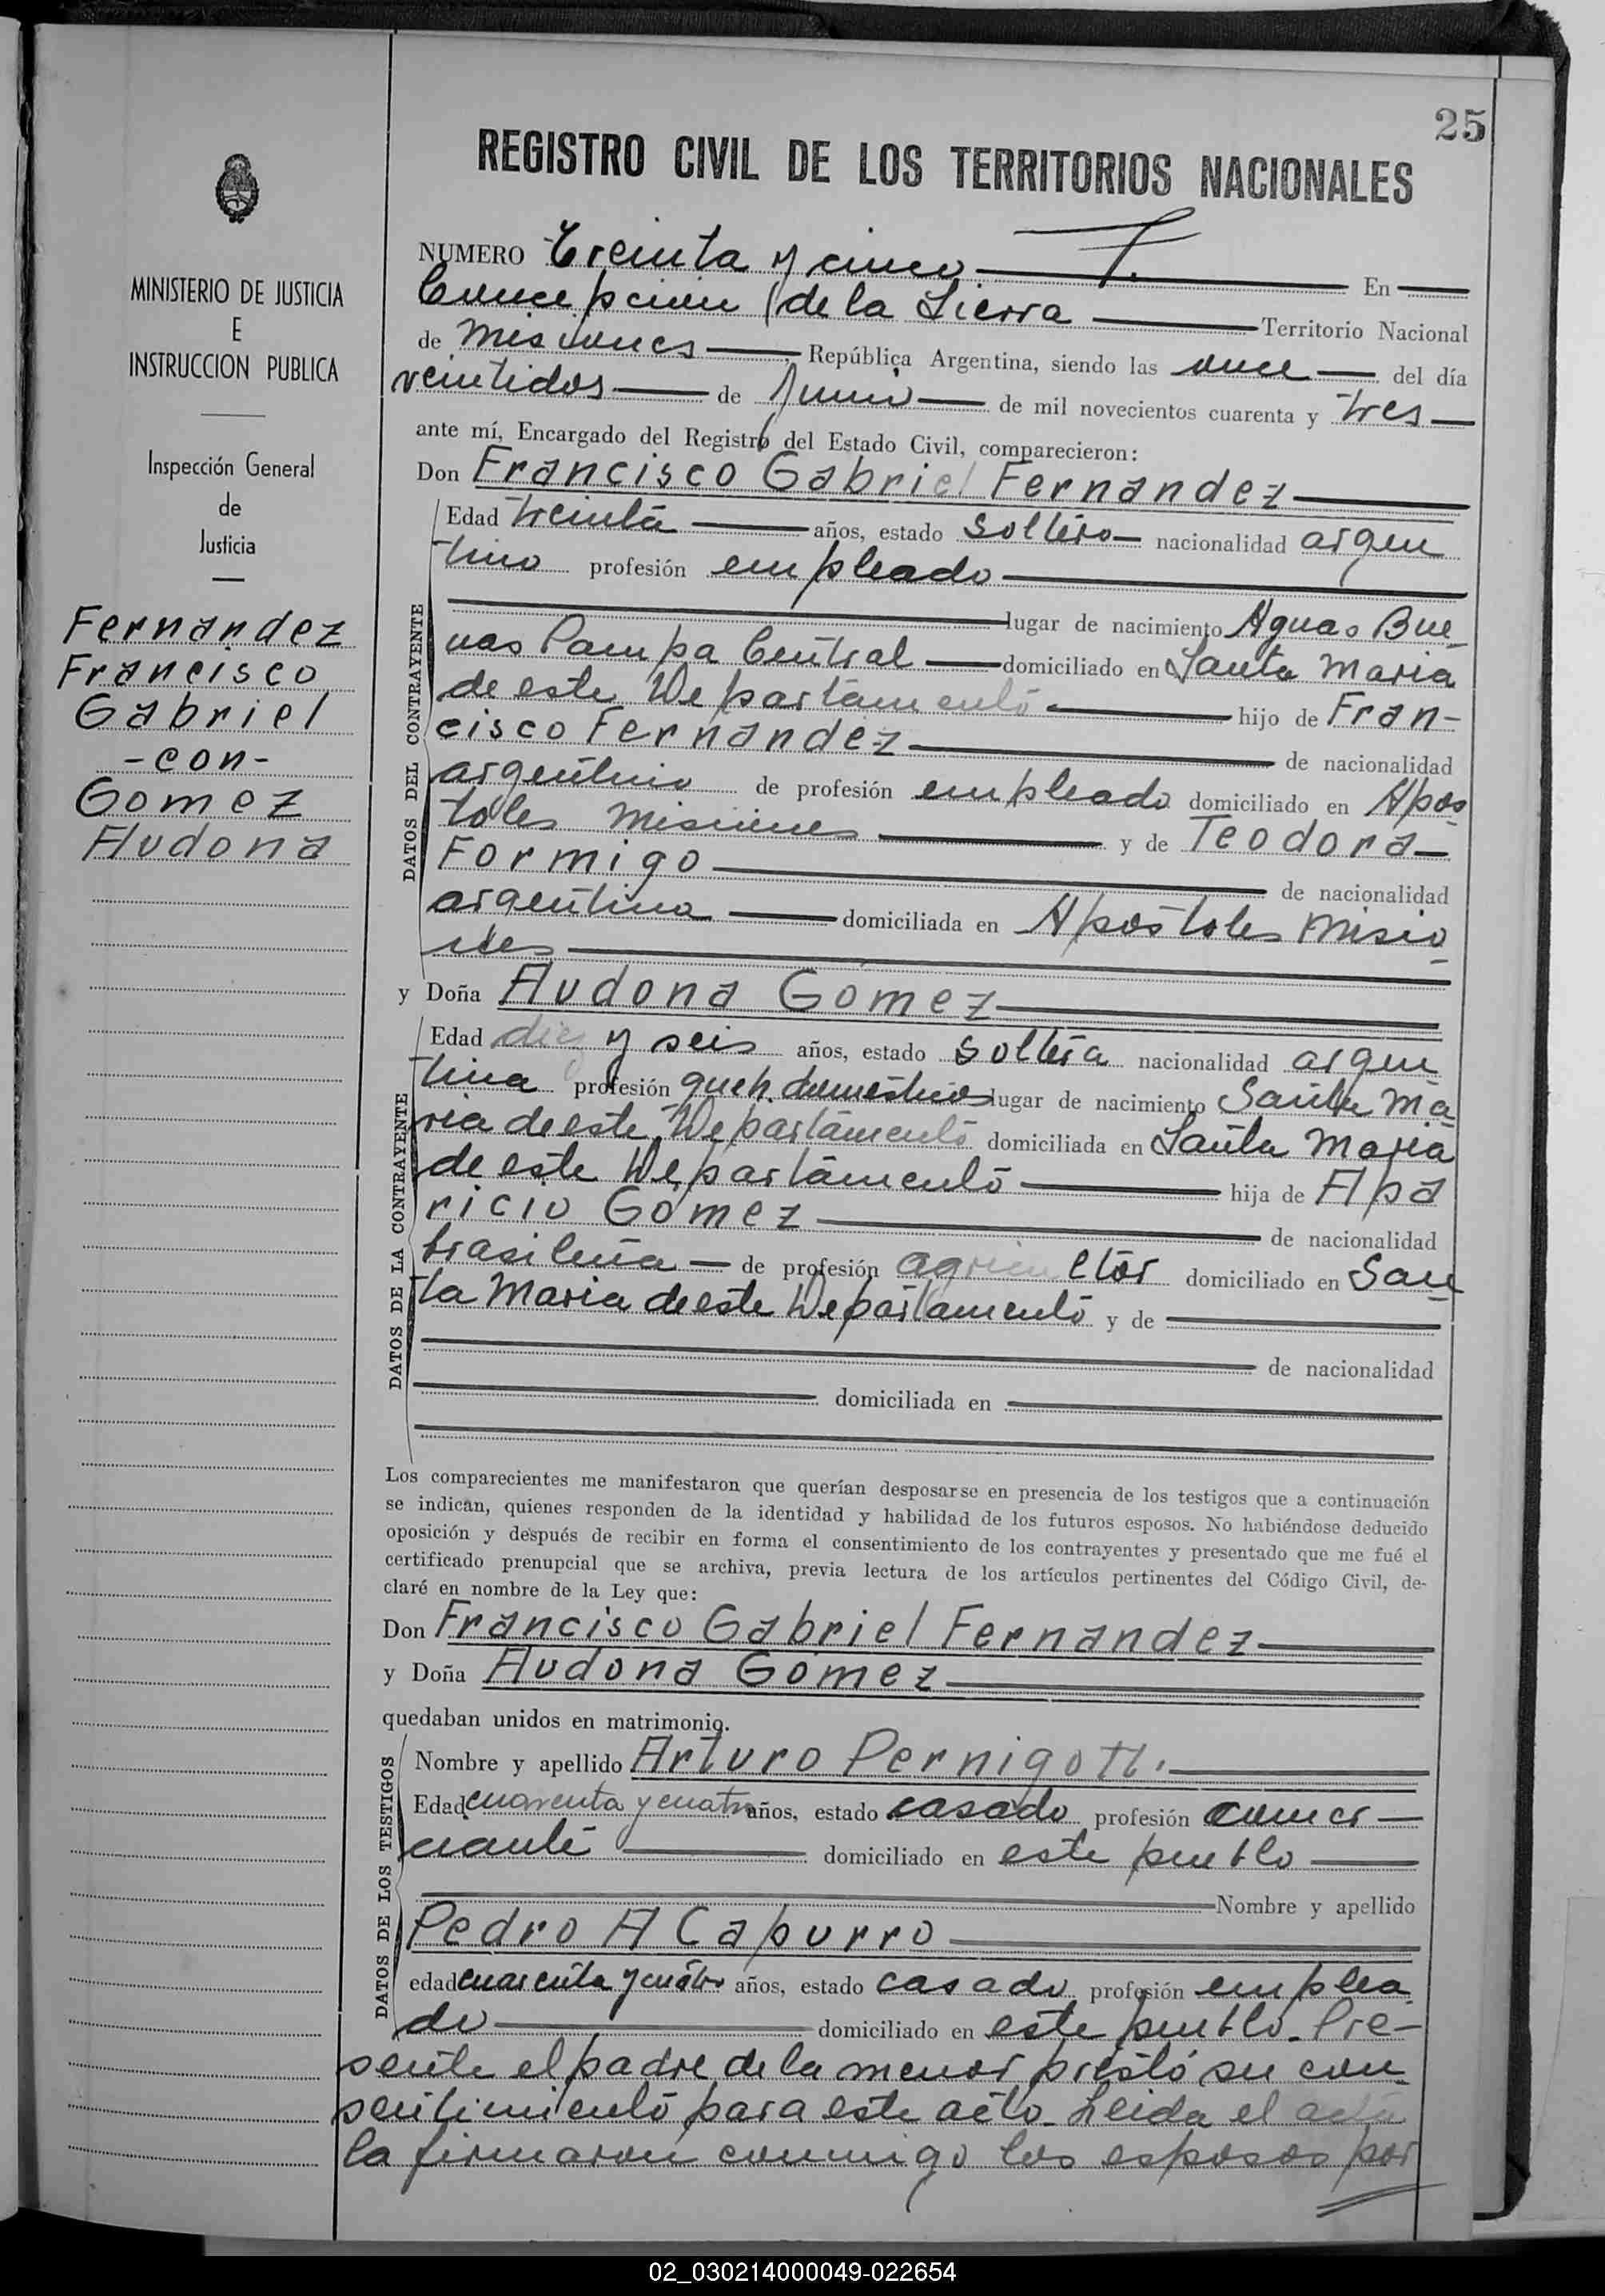 25
REGISTRO CIVIL DE LOS TERRITORIOS NACIONALES
MINISTERIO DE JUSTICIA
E
INSTRUCCION PUBLICA
Inspección General
de
Justicia
Fernandez
Francisco
Gabriel
-con-
Gomez
Audona
NUMERO Treinta y cinco En
Concepcion de la Sierra Territorio Nacional
de Misiones República Argentina, siendo las once del día
veintidos de Junio de mil novecientos cuarenta y tres
ante mí, Encargado del Registro del Estado Civil, comparecieron:
Don Francisco Gabriel Fernandez
DATOS DEL CONTRAYENTE
Edad treinta años, estado soltero nacionalidad argen
tino profesión empleado
lugar de nacimiento Aguas Bue
nas Pampa Central domiciliado en Santa Maria
de este Departamento hijo de Fran-
cisco Fernandez de nacionalidad
argentino de profesión empleado domiciliado en Apos
toles Misiones y de Teodora
Formigo de nacionalidad
argentina domiciliada en Apostoles Misio
nes
y Doña Audona Gomez
DATOS DE LA CONTRAYENTE
Edad diez y seis años, estado soltera nacionalidad argen
tina profesión queh. domesticos lugar de nacimiento Santa Ma
ria de este Departamento domiciliada en Santa Maria
de este Departamento hija de Apa
ricio Gomez de nacionalidad
brasileña de profesión agricultor domiciliado en San
ta Maria de este Departamento y de
de nacionalidad
domiciliada en
Los comparecientes me manifestaron que querían desposarse en presencia de los testigos que a continuación
se indican, quienes responden de la identidad y habilidad de los futuros esposos. No habiéndose deducido
oposición y después de recibir en forma el consentimiento de los contrayentes y presentado que me fué el
certificado prenupcial que se archiva, previa lectura de los artículos pertinentes del Código Civil, de-
claré en nombre de la Ley que:
Don Francisco Gabriel Fernandez
y Doña Audona Gomez
quedaban unidos en matrimonio.
DATOS DE LOS TESTIGOS
Nombre y apellido Arturo Pernigotti
Edad cuarenta y cuatro años, estado casado profesión comer
ciante domiciliado en este pueblo
Nombre y apellido
Pedro A Capurro
edad cuarenta y cuatro años, estado casado profesión emplea
do domiciliado en este pueblo. Pre-
sente el padre de la menor prestó su con
sentimiento para este acto. Leida el acta
la firmaron conmigo los esposos por
02_030214000049-022654